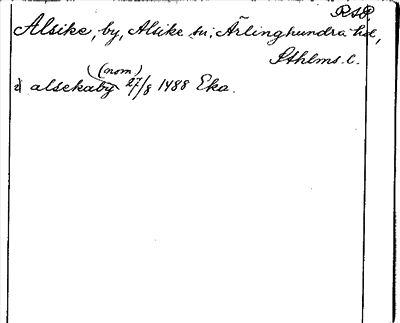 RAP.
Alsike, by, Alsike sn; Ärlinghundra hd,
Sthlms l.
(nom)
i alsekaby 27/8 1488 Eka.